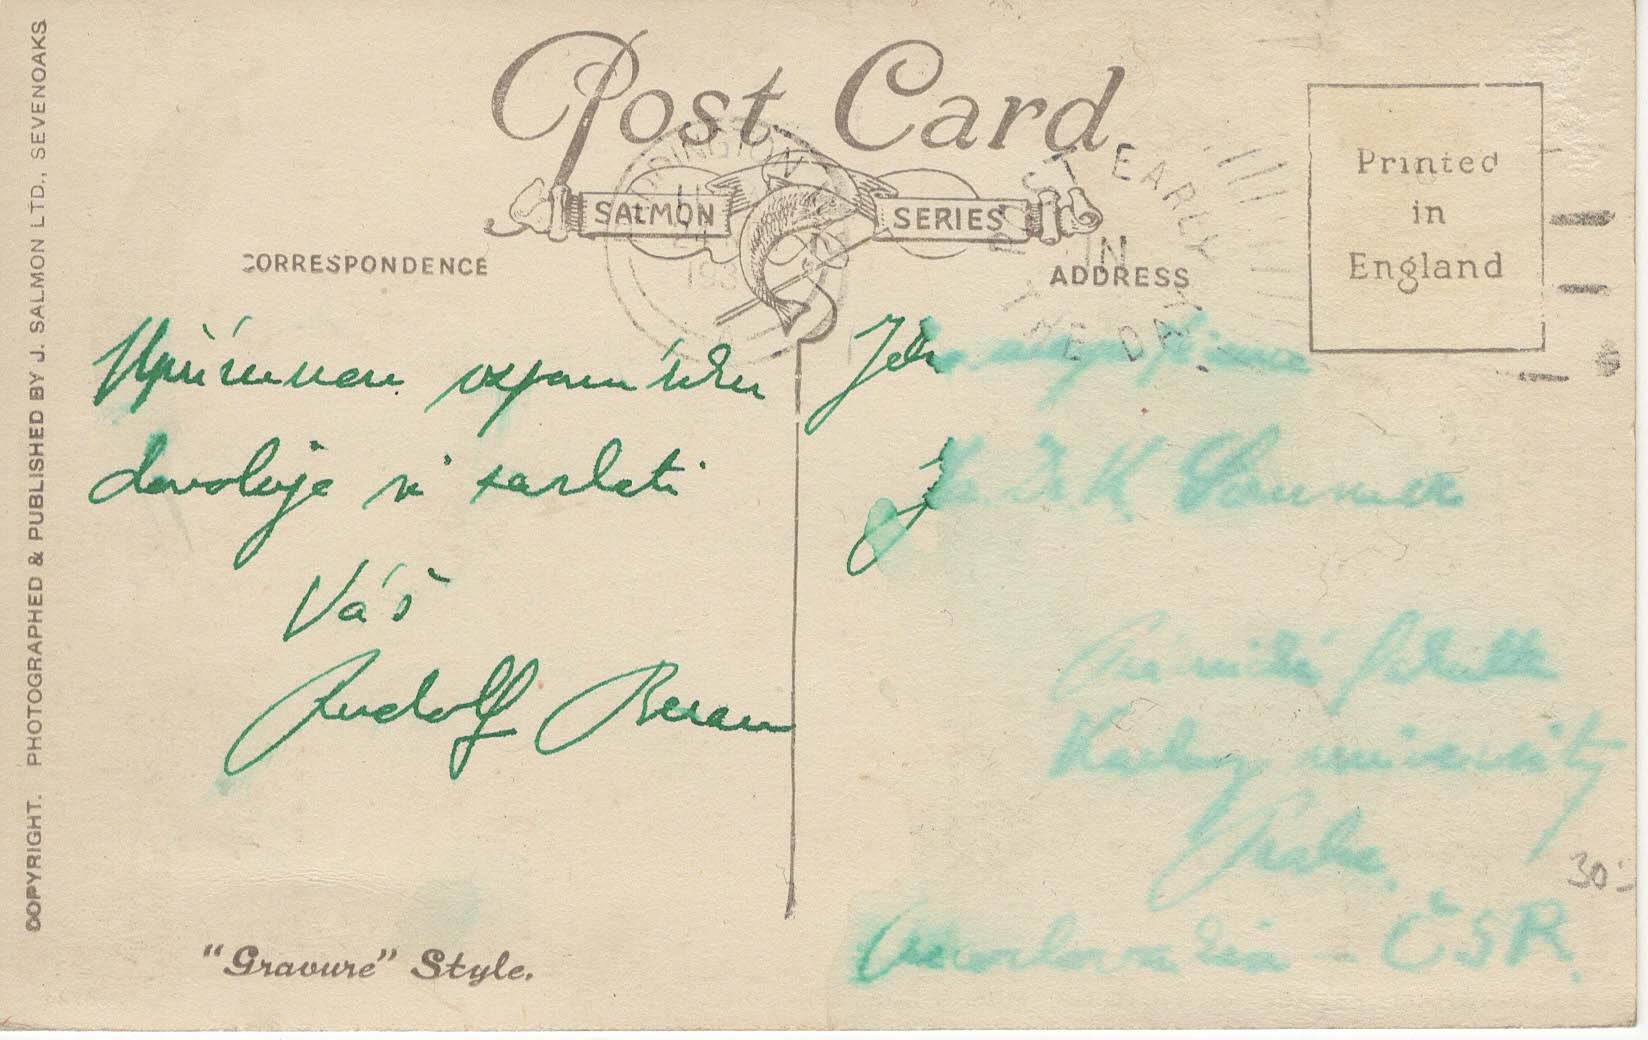 Post Card
SALMON SERIES
CORRESPONDENCE
ADDRESS
Printed
in
England
POST EARLY
IN
THE DAY
193
Upřímnou vzpomínku
dovoluje si zaslati
Váš
Rudolf Beran
Dr K
fakulta
Karlovy university
Praha
Czechoslovakia - ČSR.
30.-
"Gravure" Style.
COPYRIGHT. PHOTOGRAPHED & PUBLISHED BY J. SALMON LTD., SEVENOAKS